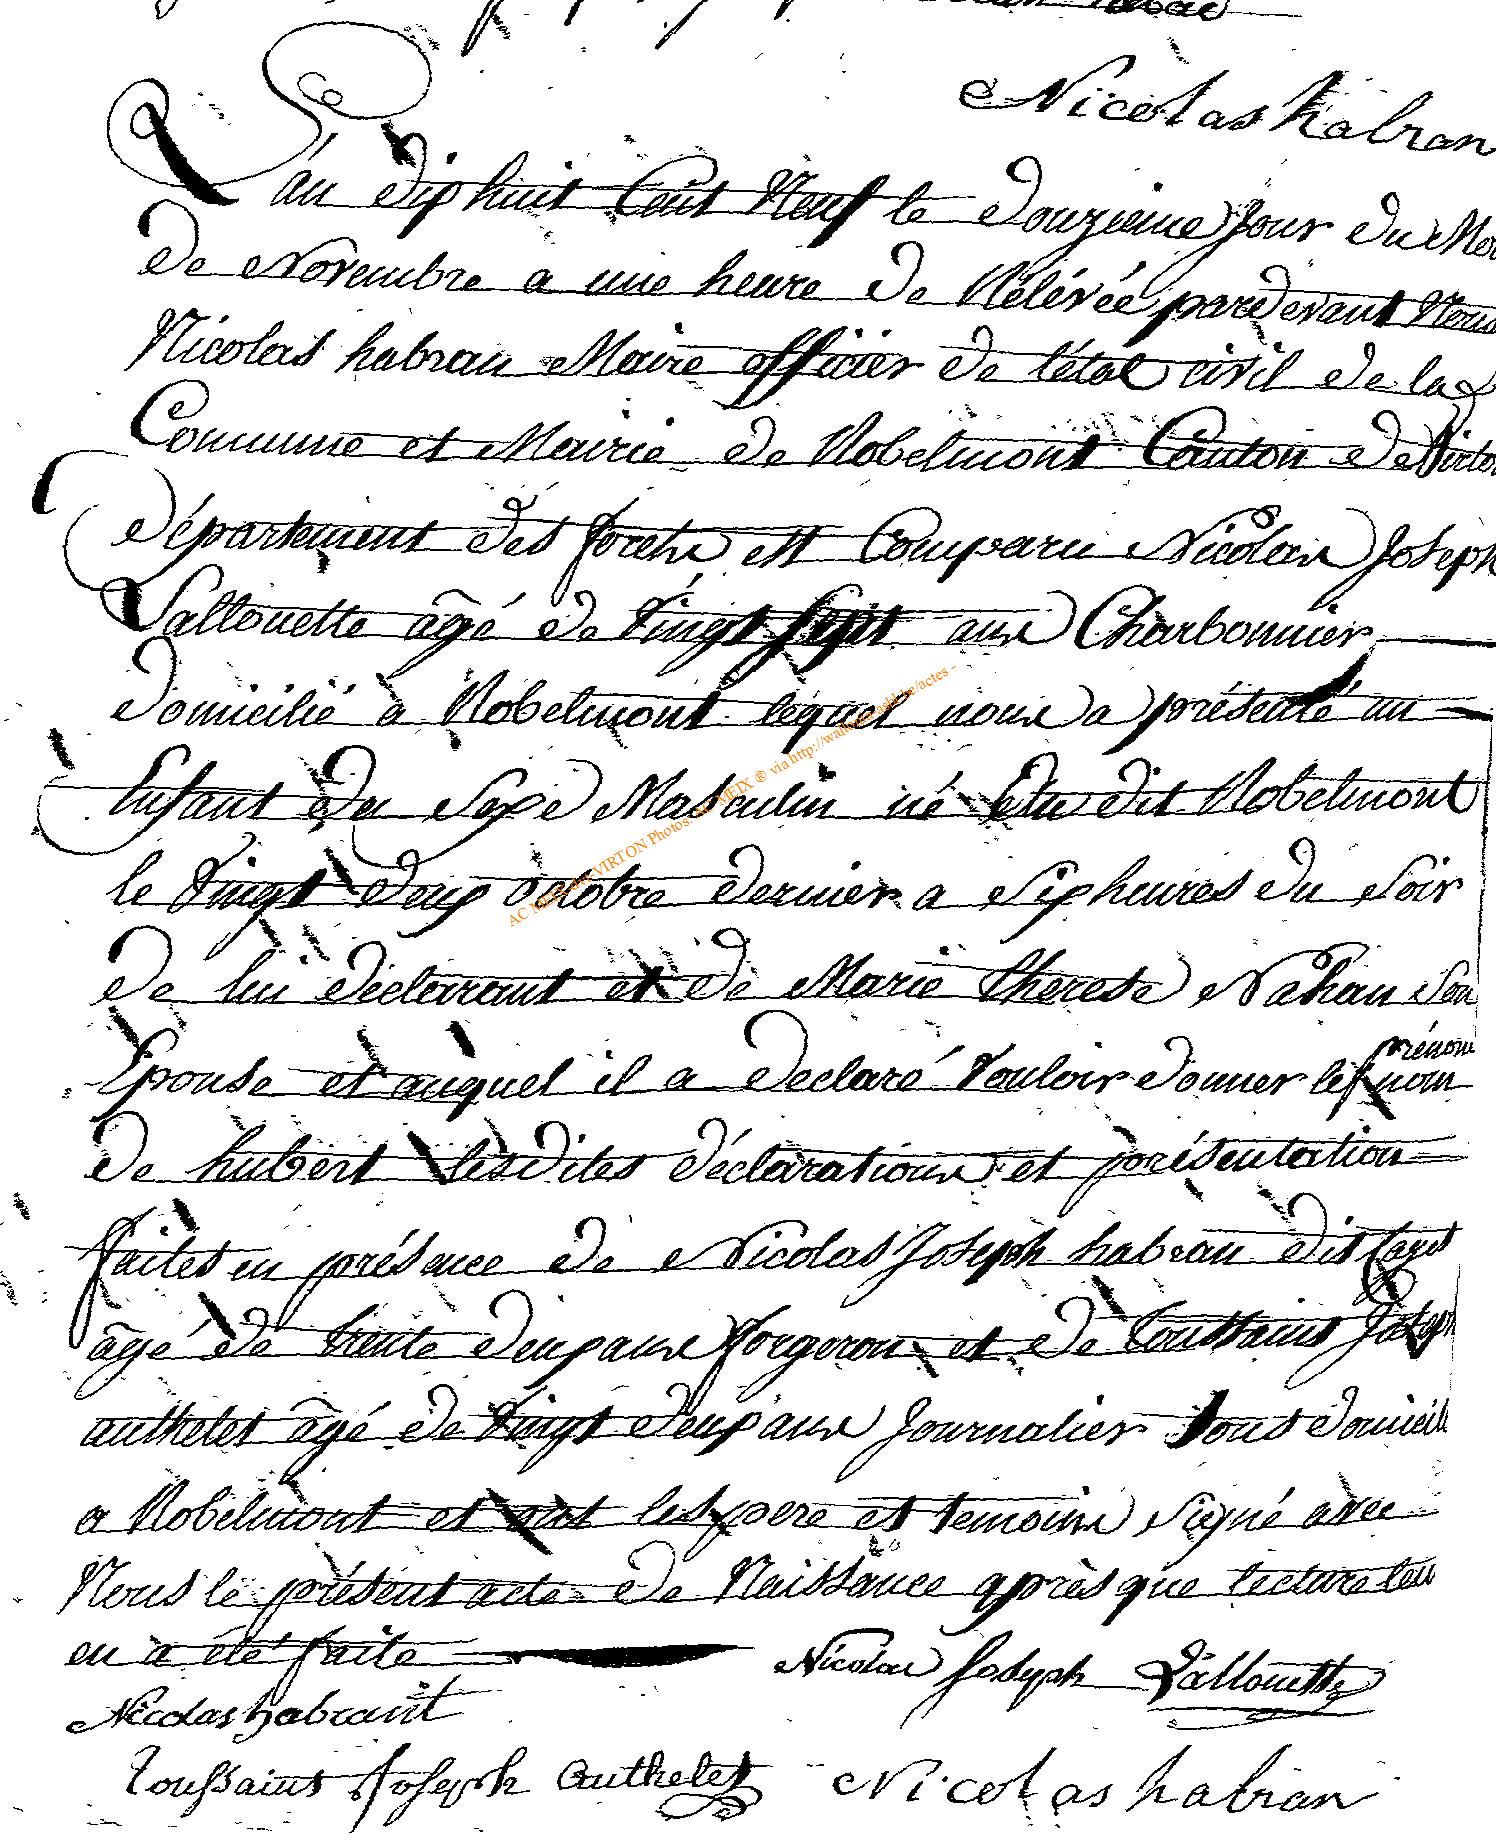 Nicolas habran
L'an dixhuit Cent Neuf le douzieme Jour du Moi
de Novembre a une heure de Rélévée pardevant Nous
Nicolas habran Maire officier de l'état civil de la
Commune et Mairie de Robelmont Canton de Virton
département des forets est Comparu Nicolas Joseph
Lallouette âgé de vingt sept ans Charbonnier
domicilié a Robelmont lequel nous a présenté un
Enfant du Sexe Masculin né au dit Robelmont
le vingt deux octobre dernier a Six heures du Soir
de lui déclarant et de Marie therese Nahan Son
prénom
Epouse et auquel il a declaré vouloir donner les nom
de hubert lesdites déclarations et présentation
faites en présence de Nicolas Joseph habran dit
âgé de trente deux ans forgeron et de toussaint Joseph
authelet âgé de vingt deux ans Journalier tous domicil
a Robelmont et ont les pere et temoins Signé avec
Nous le présent acte de Naissance après que lecture leur
en a été faite Nicolas Joseph Lallouette
Nicolas habrant
toussaint Joseph authelet Nicolas habran